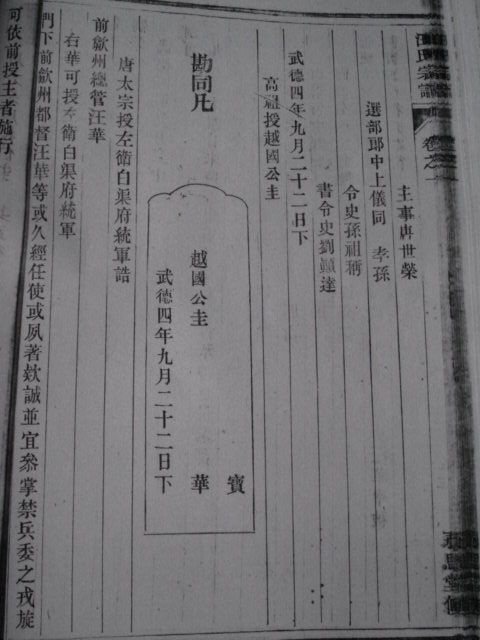 汪氏宗譜
卷之一
主事唐世榮
選部郎中上儀同 孝孫
令史孫祖
書令史劉顗達
武德四年九月二十二日下
高祖授越國公圭
勘同凡
寶
越國公圭 華
武德四年九月二十二日下
唐太宗授左衛白渠府統軍誥
前歙州總管汪華
右華可授左衛白渠府統軍
門下前歙州都督汪華等或久經任使或夙著欵誠並宜叅掌禁兵委之戎旅
可依前授主者施行